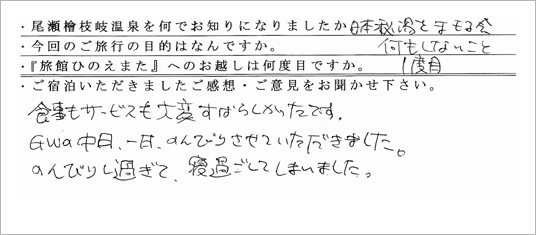 ・尾瀬檜枝岐温泉を何でお知りになりましたか 日本秘湯をまもる会
・今回のご旅行の目的はなんですか。 何もしないこと
・『旅館ひのえまた』へのお越しは何度目ですか。 1度目
・ご宿泊いただきましたご感想・ご意見をお聞かせ下さい。
食事もサービスも大変すばらしかったです。
GWの中日、一日、のんびりさせていただきました。
のんびりし過ぎて、寝過ごしてしまいました。